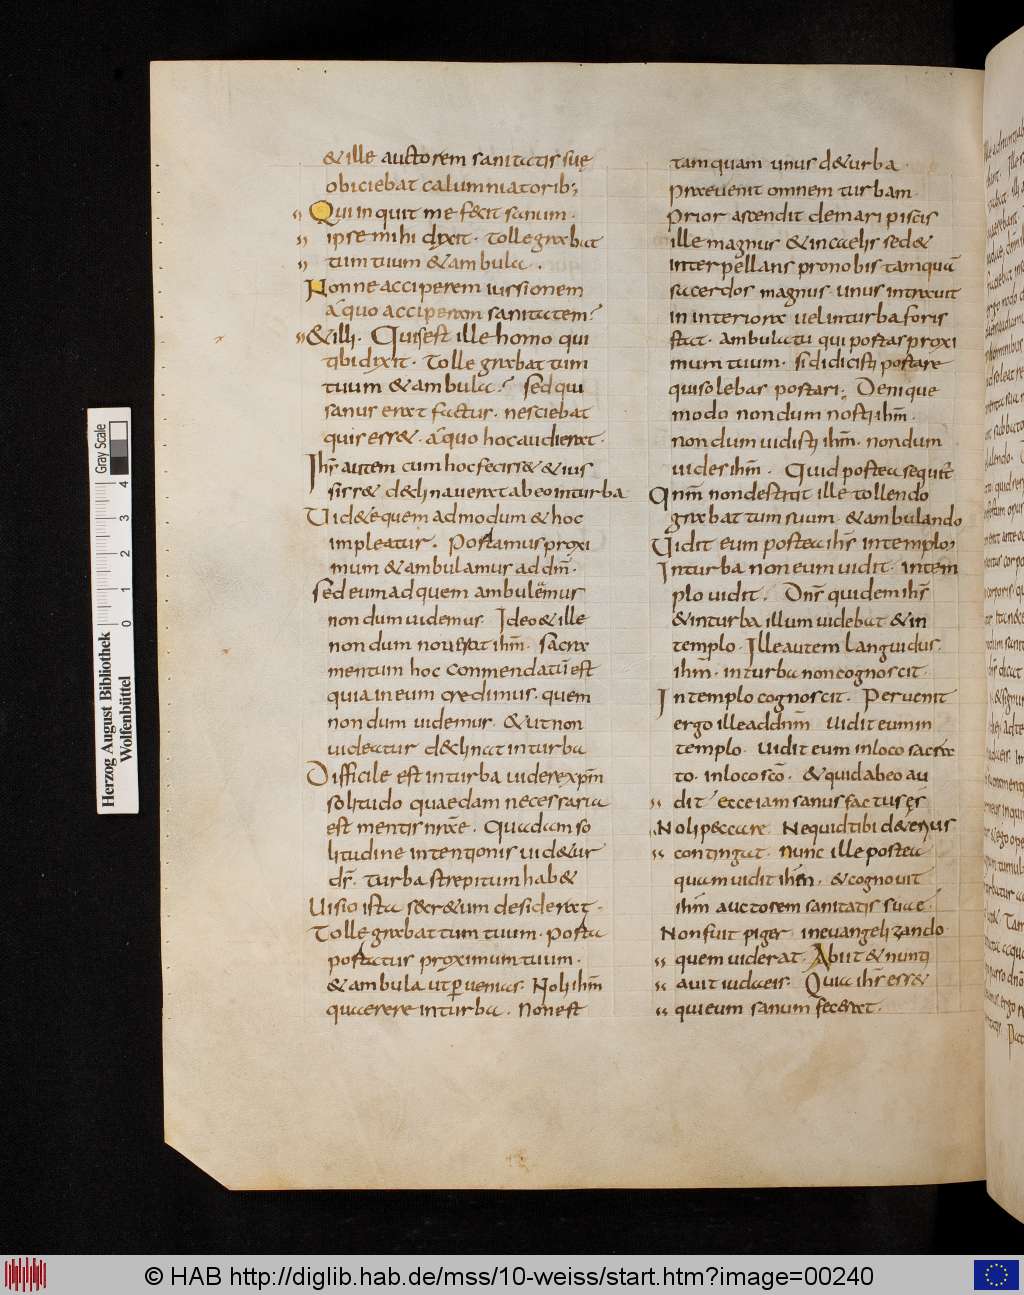 & ille auctorem sanitatis suę
obiciebat calumniatorib;
Qui inquit me fecit sanum.
ipse mihi dixit. Tolle graba
tum tuum & ambula.
Nonne acciperem iussionem
a quo acceperam sanitatem?
& illi. Quis est ille homo qui
tibi dixit. Tolle grabatum
tuum & ambula? Sed qui
sanus erat factus. nesciebat
quis ess&. a quo hoc audierat.
Ihs autem cum hoc feciss& & ius
siss& declinauerat ab eo in turba
Uid&e quem admodum & hoc
impleatur. Postamus proxi
mum & ambulamus ad dm̄.
Sed eum ad quem ambulamus
nondum uidemus. Ideo & ille
nondum nouerat ihm̄. Sacra
mentum hoc commendatū est
quia in eum credimus. quem
nondum uidemus. & ut non
uideatur declinat in turba
Difficile est in turba uidere xpm̄
solitudo quaedam necessaria
est mentis nrae. Quadam so
litudine intentionis uid&ur
ds̄. Turba strepitum hab&
Uisio ista secr&um desiderat.
Tolle grabatum tuum. porta
portatur proximum tuum.
& ambula ut puenias. Noli ihm̄
quaerere in turba. Non est
tamquam unus d&urba.
praeuenit omnem turbam.
Prior ascendit de mari piscis
ille magnus & in caelis sed&
interpellans pro nobis tamquā
sacerdos magnus. unus intrauit
in interiora uel in turba foris
stat. ambula tu qui portas proxi
mum tuum. si didicisti portare
qui solebas portari; Denique
modo nondum nosti ihm̄.
nondum uidisti ihm̄. nondum
uides ihm̄. Quid postea sequit̄
Qnm̄ non destitit ille tollendo
grabatum suum. & ambulando
Uidit eum postea ihs̄ in templo
In turba non eum uidit. in tem
plo uidit. Dns̄ quidem ihs̄
& in turba illum uidebat & in
templo. Ille autem languidus.
ihm̄. in turba non cognoscit.
In templo cognoscit. Peruenit
ergo ille ad dnm̄. Uidit eum in
templo. Uidit eum in loco sacra
to. in loco sc̄o. & quid ab eo au
dit ecce iam sanus factus es
Noli peccare. Ne quid tibi deterius
contingat. Nunc ille postea
quam uidit ihm̄. & cognouit
ihm̄ auctorem sanitatis suae.
Non fuit piger in euangelizando
quem uiderat. Abiit & nunti
auit iudaeis. Quia ihs̄ ess&
qui eum sanum fecerat.
Herzog August Bibliothek
Wolfenbüttel
Gray Scale
0 1 2 3 4
© HAB http://diglib.hab.de/mss/10-weiss/start.htm?image=00240